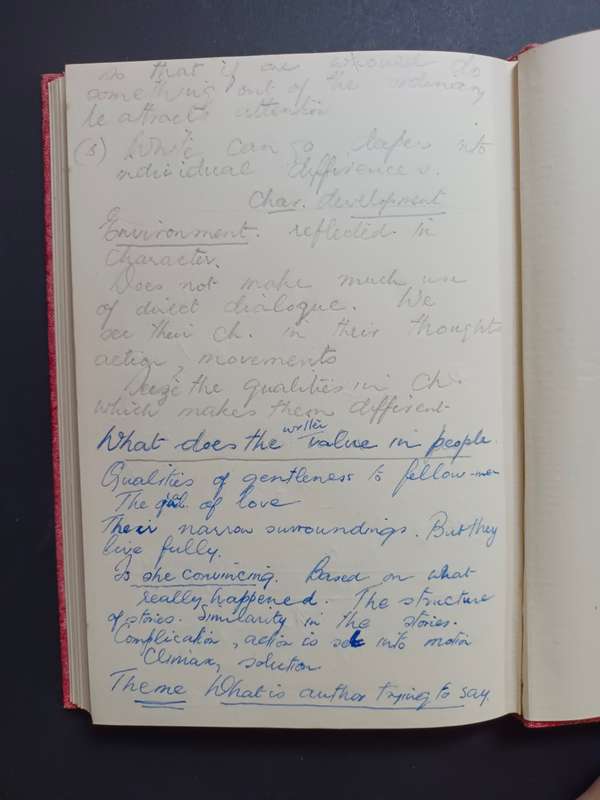 so that if one should do
something out of the ordinary
he attracts attention
(3) Writer can go deeper into
individual differences.
Char. development
Environment. reflected in
Character.
Does not make much use
of direct dialogue. We
see their ch. in their thoughts
action, movements
the qualities in Ch.
which makes them different
What does the writer value in people.
Qualities of gentleness to fellow-men
The qual. of love
Their narrow surroundings. But they
live fully.
Is she convincing. Based on what
really happened. The structure
of stories. Similarity in the stories.
Complication, action is set into motion
Climax, solution
Theme What is author trying to say.